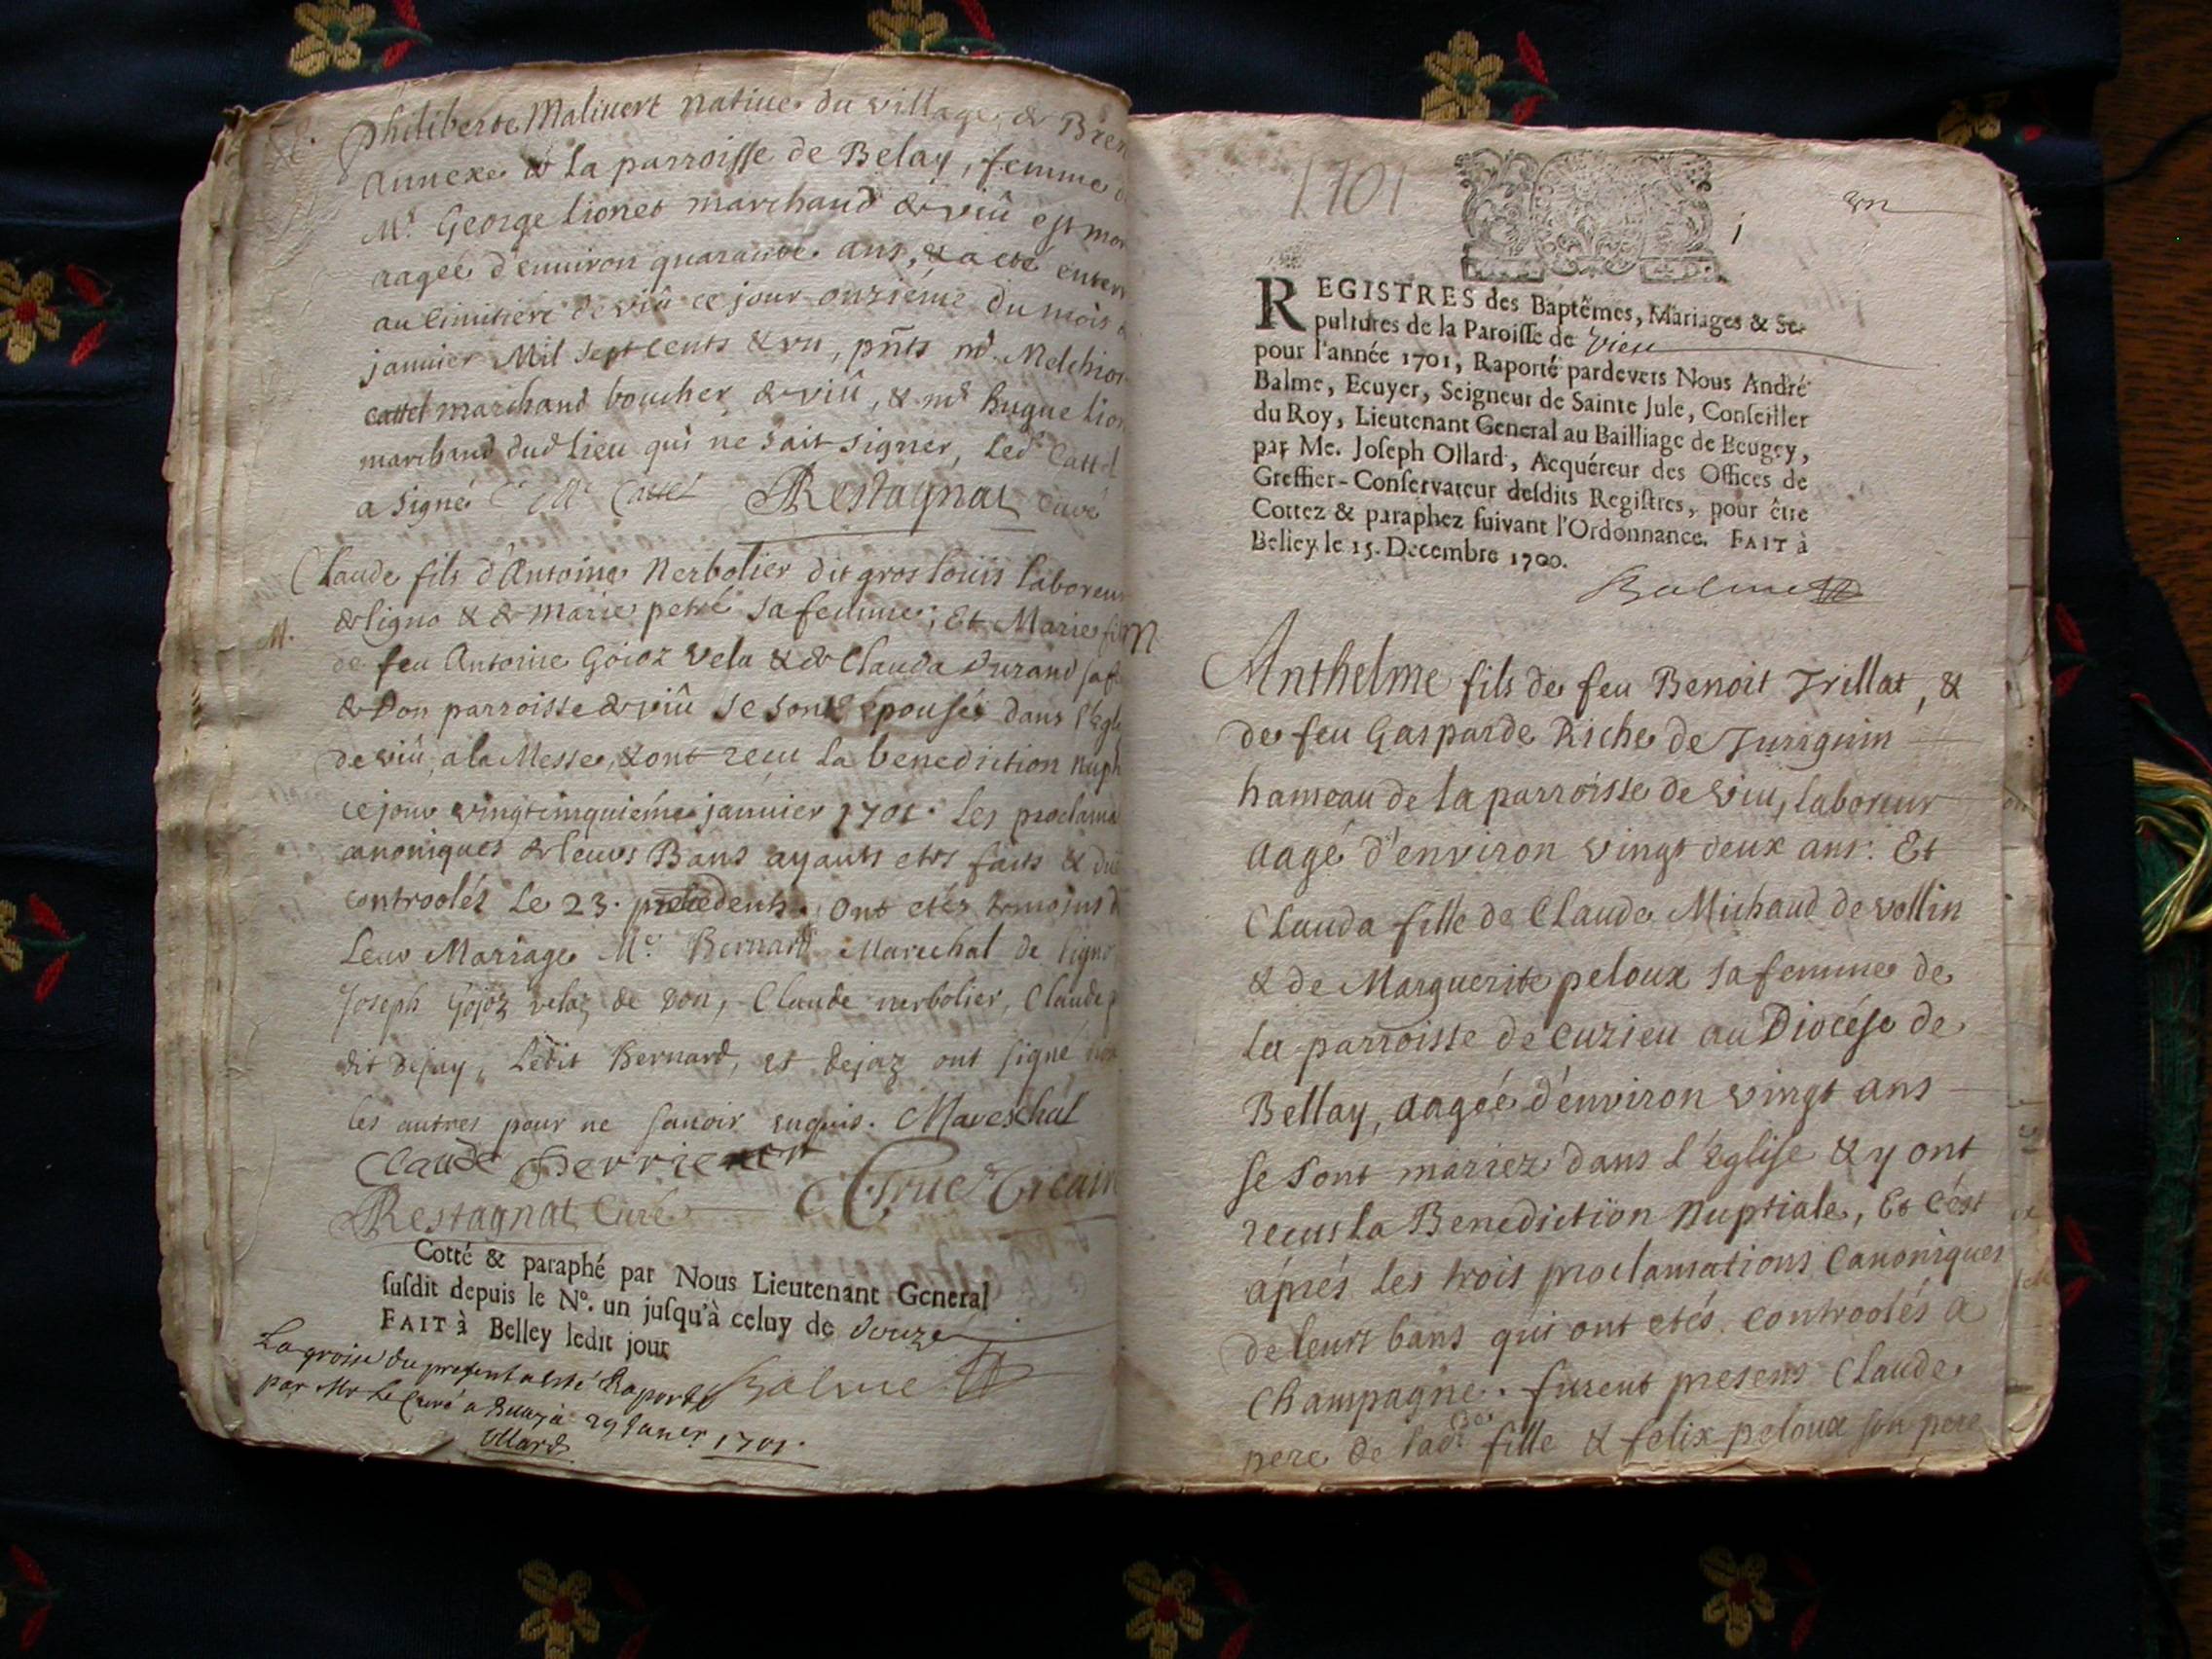 Philiberte Malivert native du village de Bren
Annexe de la parroisse de Belay, femme d
Mr. George Lionet marchand de viû est mor
aagée d'environ quarante ans, & a eté enterr
au Cimitiere de viû ce jour onzieme du mois d
janvier Mil Sept cents & un, pnts md. Melchior
cattel marchand boucher de viû, & md hugue lion
marchand dud lieu qui ne sait signer, led Cattel
a signé Cattel Restagnat Curé
Claude fils d'Antoine Nerbolier dit gros louis laboreur
de ligno & de Marie petré sa femme; Et Marie fil
M.
de feu Antoine Gojoz vela & de Clauda Durand sa f
de Don parroisse de viû se sont épousés dans l'Egli
de viû, a la Messe, & ont recu la benediction nupti
ce jour vingtcinquiéme janvier 1701. Les proclama
canoniques de leurs Bans ayants etés faits & du
controolés le 23. precedent. Ont etés temoins d
Leur Mariage Me. Bernard Marechal de ligno
Joseph Gojoz velaz de Don, Claude nerbolier, Claude p
dit dejay, Ledit Bernard, et dejaz ont signé non
les autres pour ne savoir enquis. Mareschal
Claude
Restagnat Curé
Cotté & paraphé par Nous Lieutenant General
susdit depuis le N°. un jusqu'à celuy de douze
FAIT à Belley ledit jour
La grosse du present a esté Raporté Balme
par Mr Le Curé a Belley à 29 Janer 1701.
Ollard
1701
j
un
REGISTRES des Baptêmes, Mariages & Se-
pultures de la Paroisse de Vieu
pour l'année 1701, Raporté pardevers Nous André
Balme, Ecuyer, Seigneur de Sainte Jule, Conseiller
du Roy, Lieutenant General au Bailliage de Beugey,
par Me. Joseph Ollard, Acquéreur des Offices de
Greffier-Conservateur desdits Registres, pour être
Cottez & paraphez suivant l'Ordonnance. FAIT à
Belley le 15. Decembre 1700.
Balme
M
Anthelme fils de feu Benoit Trillat, &
de feu Gasparde Riche de Turignin
hameau de la parroisse de viu, laboreur
aagé d'environ vingt deux ans. Et
Clauda fille de Claude Michaud de vollin
& de Marguerite peloux sa femme de
la parroisse de Cuzieu au Diocése de
Bellay, aagée d'environ vingt ans
se sont mariez dans l'Eglise & y ont
recus la Benediction Nuptiale, Et c'est
aprés les trois proclamations Canoniques
de leurs bans qui ont etés controolés a
Champagne. furent presens Claude
pere de lad. fille & felix peloux son pere